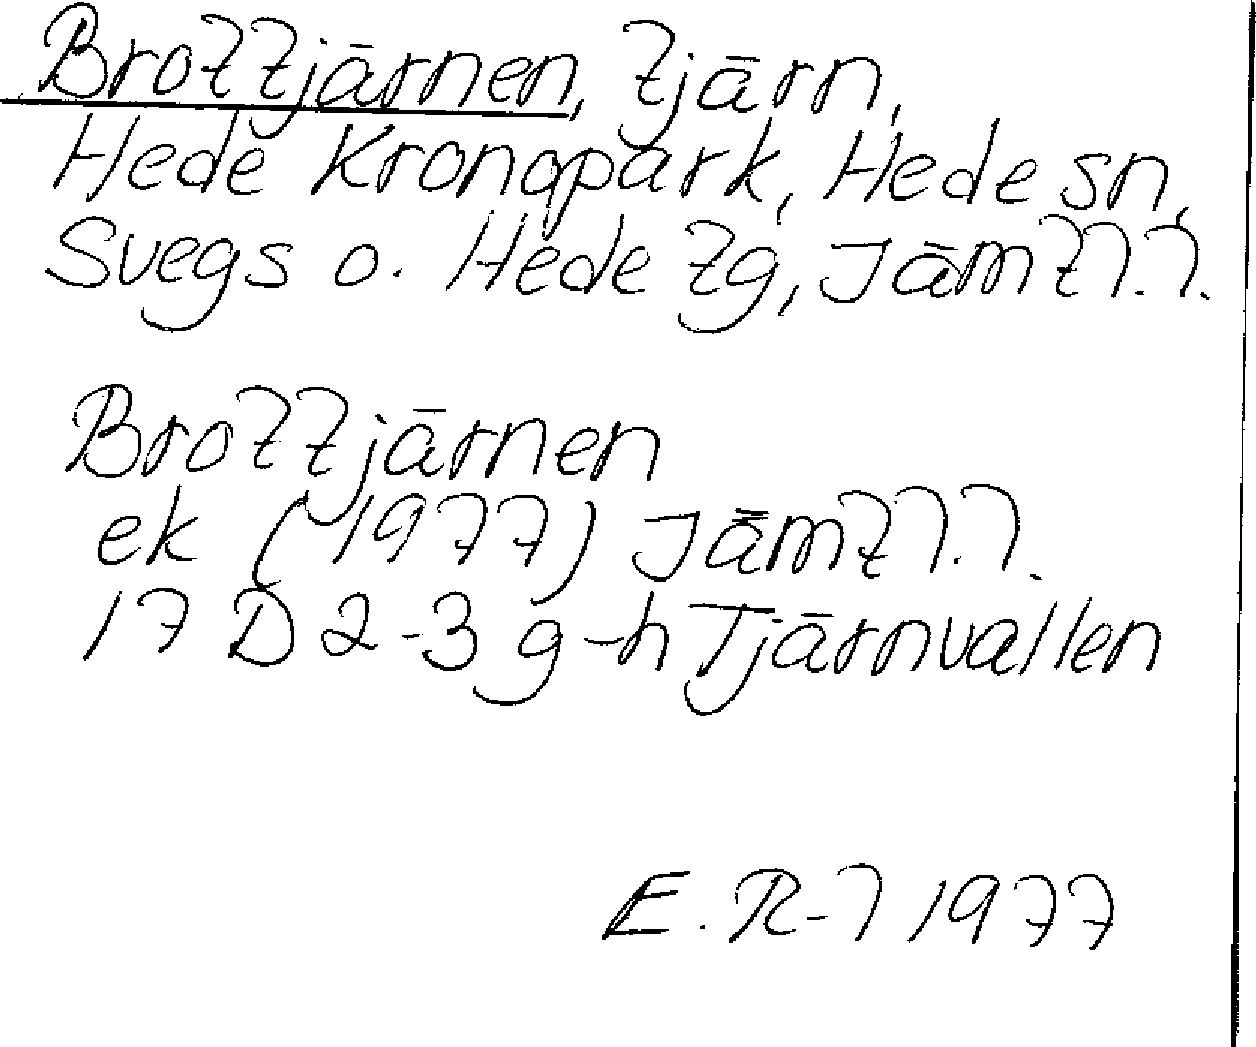 Brottjärnen, tjärn,
Hede Kronopark, Hede sn,
Svegs o. Hede tg, Jämtl.l.
Brottjärnen
ek (1977) Jämtl.l.
17 D 2-3 g-h Tjärnvallen
E. R-l 1977